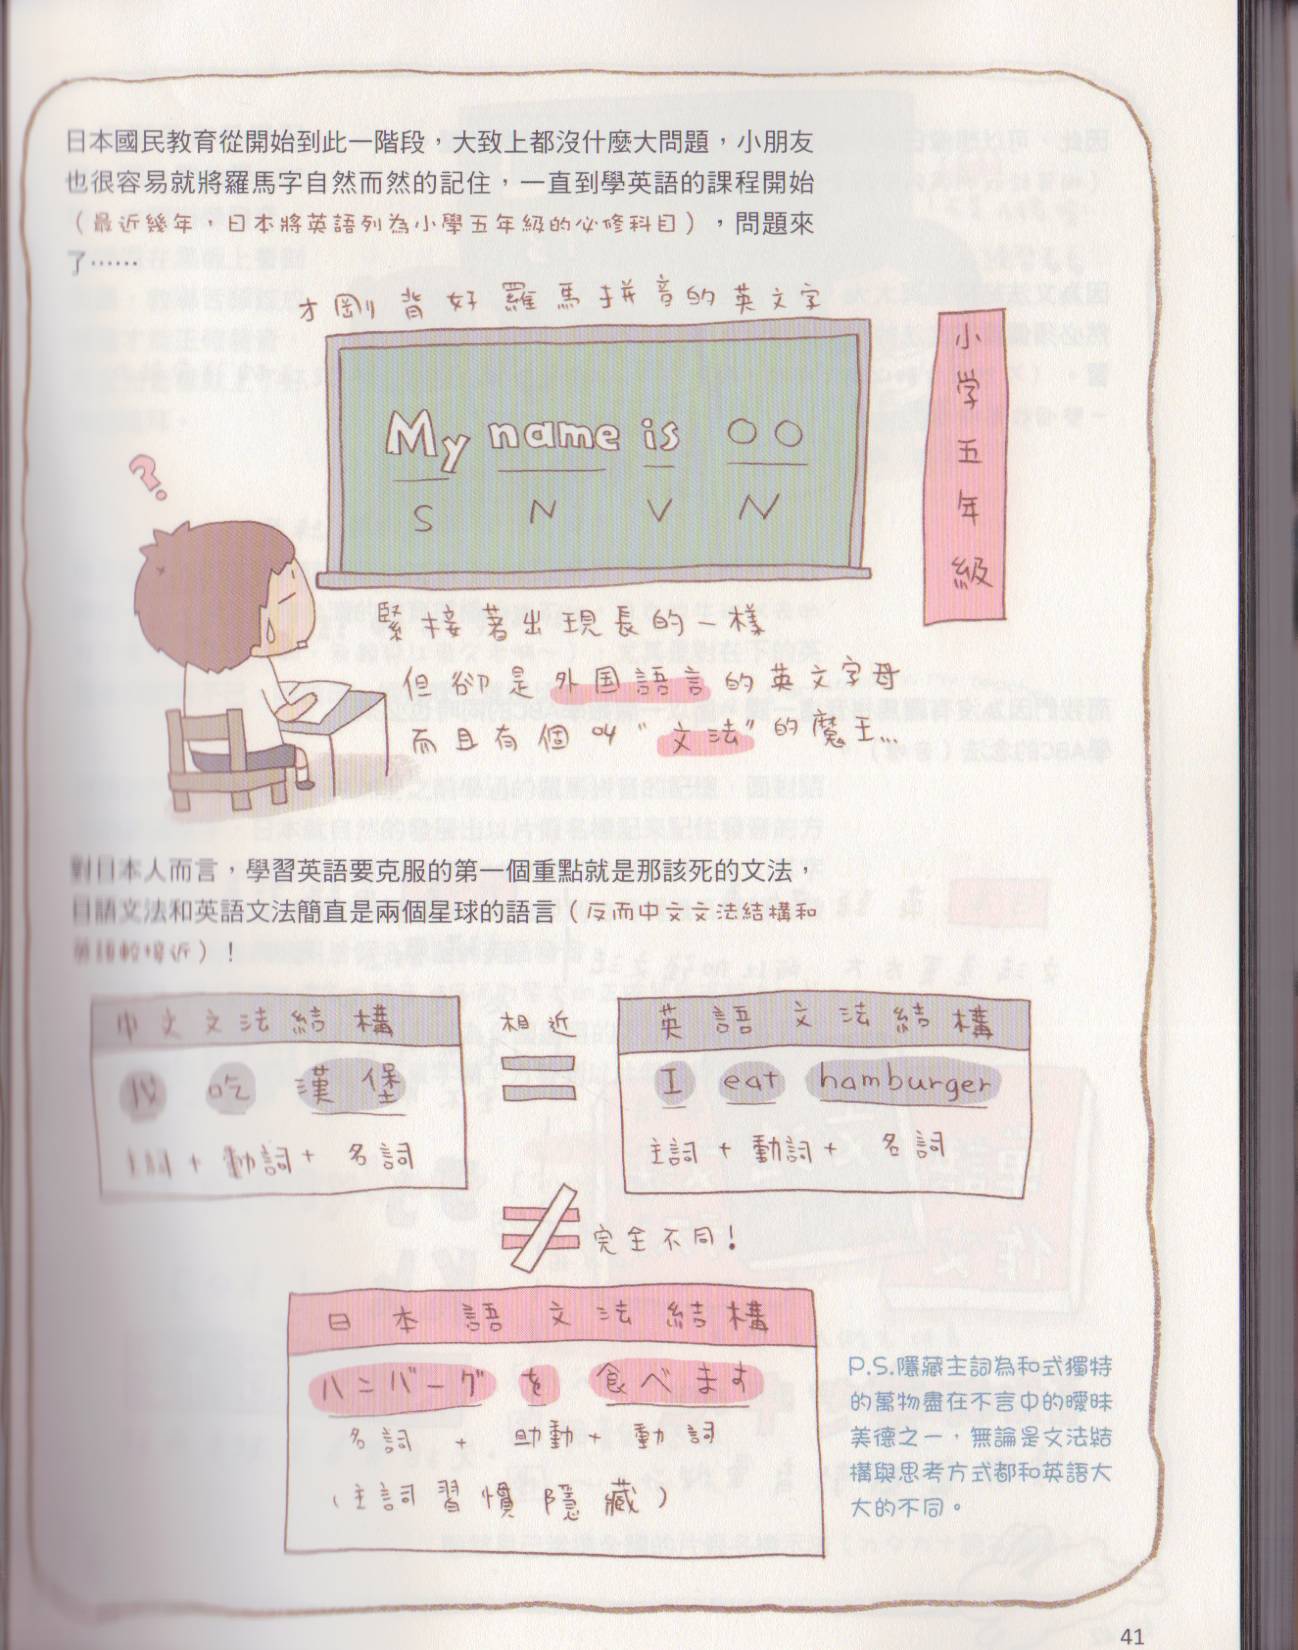 日本國民教育從開始到此一階段，大致上都沒什麼大問題，小朋友
也很容易就將羅馬字自然而然的記住，一直到學英語的課程開始
（最近幾年，日本將英語列為小學五年級的必修科目），問題來
了……
才剛背好羅馬拼音的英文字
My name is ○○
S N V N
小学五年級
?.
緊接著出現長的一樣
但卻是外国語言的英文字母
而且有個叫“文法”的魔王…
對日本人而言，學習英語要克服的第一個重點就是那該死的文法，
日語文法和英語文法簡直是兩個星球的語言（反而中文文法結構和
英語較接近）！
中文文法結構
我 吃 漢堡
主詞+動詞+名詞
相近
英語文法結構
I eat hamburger
主詞+動詞+名詞
完全不同！
日本語文法結構
ハンバーグ を 食べます
名詞+助動+動詞
（主詞習慣隱藏）
P.S.隱藏主詞為和式獨特
的萬物盡在不言中的曖昧
美德之一，無論是文法結
構與思考方式都和英語大
大的不同。
41